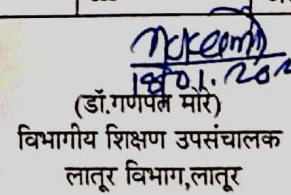 (डॉ.गणपत मोरे)
विभागीय शिक्षण उपसंचालक
लातूर विभाग,लातूर